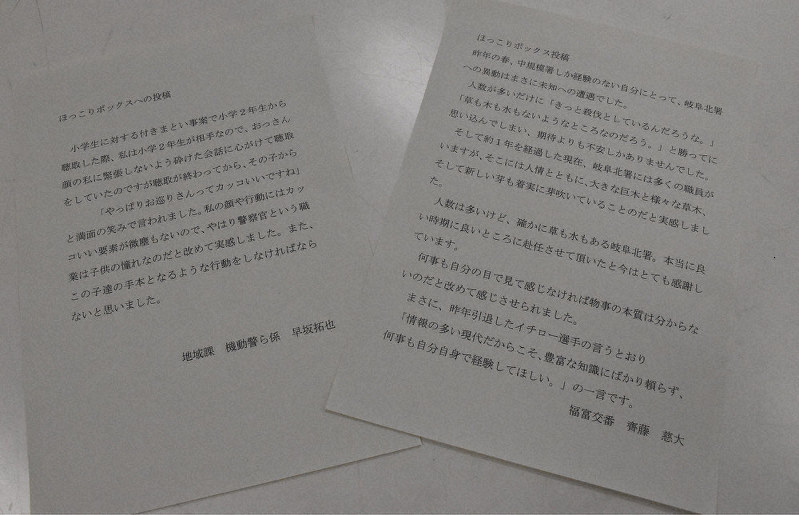 ほっこりボックスへの投稿
小学生に対する付きまとい事案で小学２年生から
聴取した際、私は小学２年生が相手なので、おっさん
顔の私に緊張しないよう砕けた会話に心がけて聴取
をしていたのですが聴取が終わってから、その子から
「やっぱりお巡りさんってカッコいいですね」
と満面の笑みで言われました。私の顔や行動にはカッ
コいい要素が微塵もないので、やはり警察官という職
業は子供の憧れなのだと改めて実感しました。また、
この子達の手本となるような行動をしなければなら
ないと思いました。
地域課　機動警ら係　早坂拓也
ほっこりボックス投稿
昨年の春、中規模署しか経験のない自分にとって、岐阜北署
への異動はまさに未知への遭遇でした。
人数が多いだけに「きっと殺伐としているんだろうな。」
「草も木も水もないようなところなのだろう。」と勝ってに
思い込んでしまい、期待よりも不安しかありませんでした。
そして約１年を経過した現在、岐阜北署には多くの職員が
いますが、そこには人情とともに、大きな巨木と様々な草木、
そして新しい芽も着実に芽吹いていることのだと実感しまし
た。
人数は多いけど、確かに草も水もある岐阜北署。本当に良
い時期に良いところに赴任させて頂いたと今はとても感謝し
ています。
何事も自分の目で見て感じなければ物事の本質は分からな
いのだと改めて感じさせられました。
まさに、昨年引退したイチロー選手の言うとおり
「情報の多い現代だからこそ、豊富な知識にばかり頼らず、
何事も自分自身で経験してほしい。」の一言です。
福富交番　齊藤　慈大